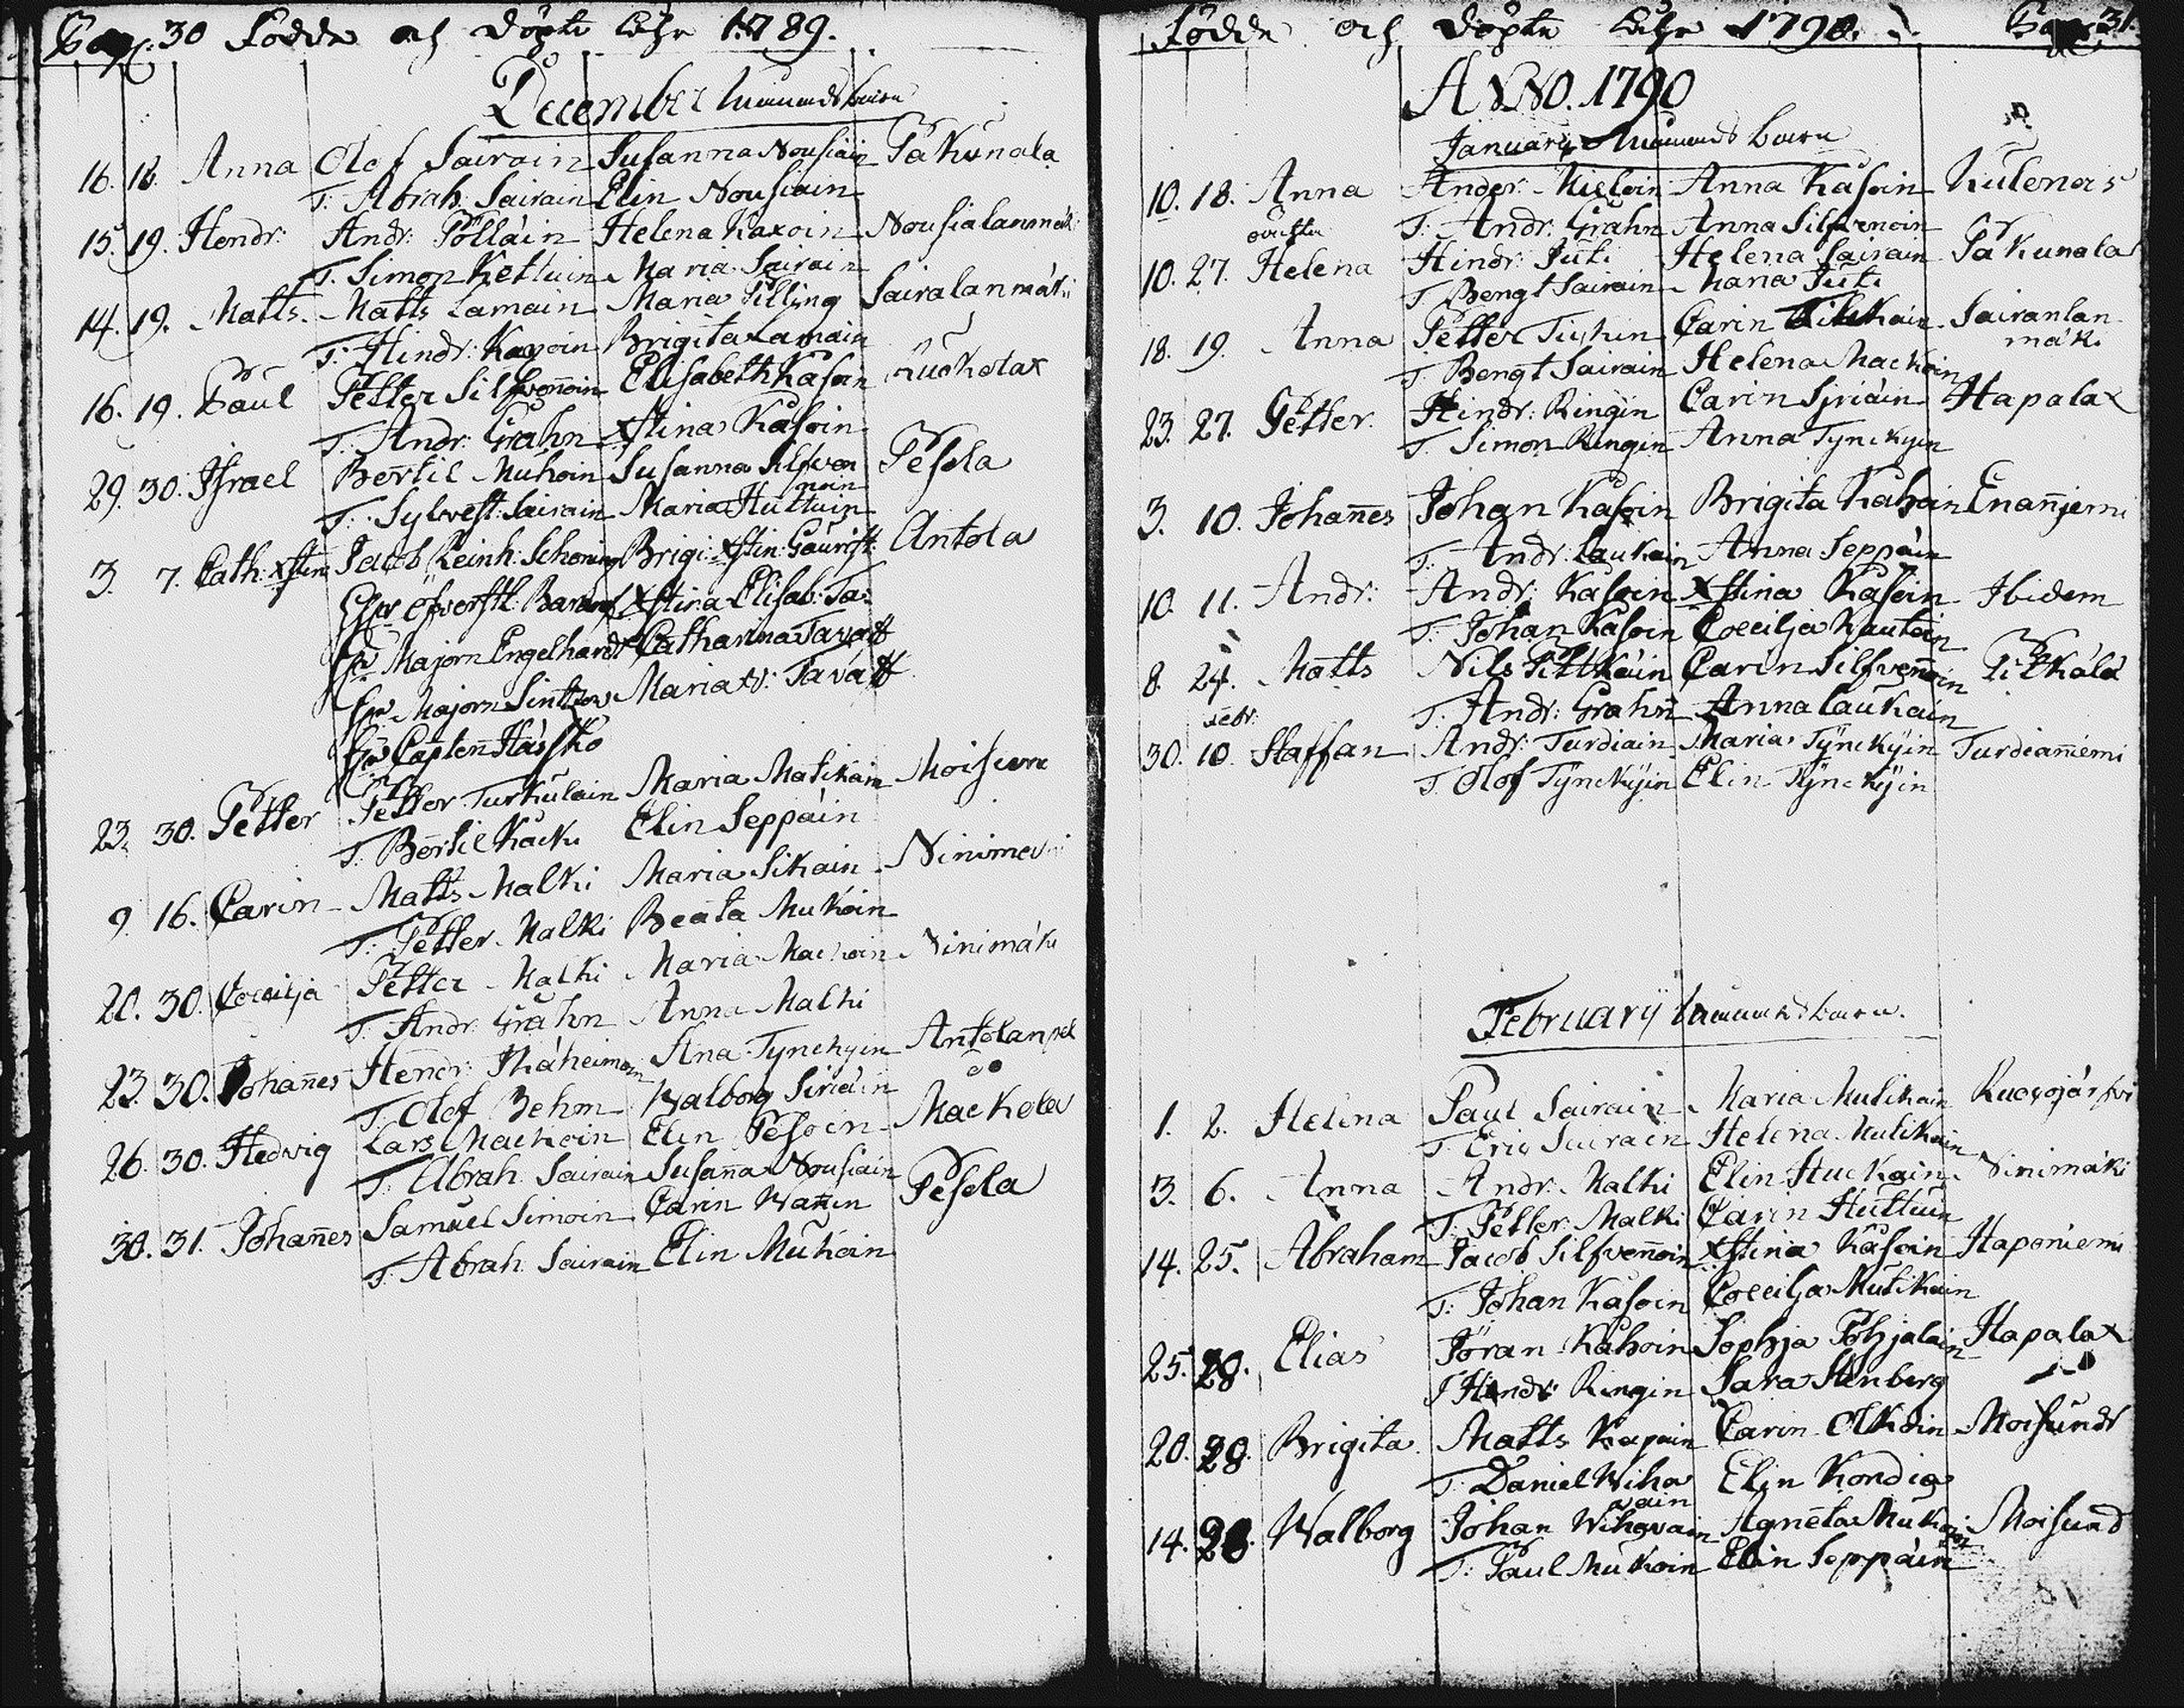 Pag: 30 Födde och döpte åhr 1789.
December månads barn
16. 18. Anna Olof Sairain Susanna Nousiain Pakunala
T: Abrah. Sairain Elin Nousiain
15. 19. Hendr: Andr: Pölläin Helena Kaxoin Nousialanmäki
T. Simon Kettuin Maria Sairain
14. 19. Matts Matts Lamain Maria Pilling Sairalanmäki
T: Hindr: Kapoin Brigita Lamain
16. 19. Paul Petter Silfvenoin Elisabeth Kasoin Ruokolax
T. Andr: Grahn Xstina Kåsoin
29. 30. Israel Bertil Mukoin Susanna Silfven Pesola
noin
T. Sylvest: Sairain Maria Huttuin
3. 7. Cath: Xstin Jacob Reinh: Schoning Brigi: Xstin: Gaurift: Antola
öfverstl: Xstina Elisab: Ta:
Hr Majorn Engelhardt Catharina Tavatt
Hr Majorn Sintzow Maria W: Tavatt
Hr Capten Hässko
23. 30. Petter Petter Turkulain Maria Matikain Moisund
T: Bertil Käcki Elin Seppäin
9. 16. Carin Matts Malki Maria Sikain Ninimeki
T: Petter Malki Beata Mukoin
20. 30. Coecilja Petter Malki Maria Mackoin Ninimäki
T. Andr: Grahn Anna Malki
23. 30. Johanes Hendr: Thäheimoin Ana Tynckyin Antolanpel
T: Olof Behm Walborg Siriäin
26. 30. Hedvig Lars Mackoin Elin Pesoin Mackola
T: Abrah. Sairain Susana Nousiain
30. 31. Johanes Samuel Simoin Carin Wattin Pesola
T: Abrah. Sairain Elin Mukoin
Födde och döpte åhr 1790. Pag: 31.
ANNO. 1790
Januarij månads barn
10. 18. Anna Ander: Kieloin Anna Kåsoin Kulenois
T. Andr. Grahn Anna Silfvenoin
10. 27. Helena Hindr: Juti Helena Sairain Pakunala
T Bengt Sairain Maria Juti
18. 19. Anna Petter Tiihin Carin Kilkkain Sairanlan
mäki
T: Bengt Sairain Helena Mackoin
23. 27. Petter Hindr: Ringin Carin Sjriäin Hapalax
T. Simon Ringin Anna Tynckyin
3. 10. Johanes Johan Kåsoin Brigita Kåhoin Enanjemi
T: Andr: Laukain Anna Seppäin
10. 11. Andr: Andr: Kåsoin Xstina Kåsoin Ibidem
T: Johan Kåsoin Coecilja Kautoin
8. 24. Matts Nils Pittkäin Carin Silfvenoin Pitkälä
T: Andr: Grahn Anna Laukain
Febr:
30. 10. Staffan Andr: Turdiain Maria Tynckyin Turdianiemi
T. Olof Tynckyin Elin Tynckyin
Februarij månads barn.
1. 2. Helena Paul Sairain Maria Mutikain Kuocojärfvi
T Eric Sairain Helena Mutikain
3. 6. Anna Andr. Malki Elin Huckain Ninimäki
T: Petter Malki Carin Huttuin
14. 25. Abraham Jacob Silfvenoin Xstina Kåsoin Haponiemi
T: Johan Kåsoin Coecilja Mutikain
25. 28. Elias Jöran Kåhoin Sophja Pohjalain Hapalax
T Hendr Ringin Sara Stenberg
20. 28. Brigita Matts Kapain Carin Olkoin Moisund
T: Daniel Wiha Elin Kondia
wain
14. 28. Walborg Johan Wihavain Agneta Mukoin Moisund
T: Paul Mukoin Elin Seppäin